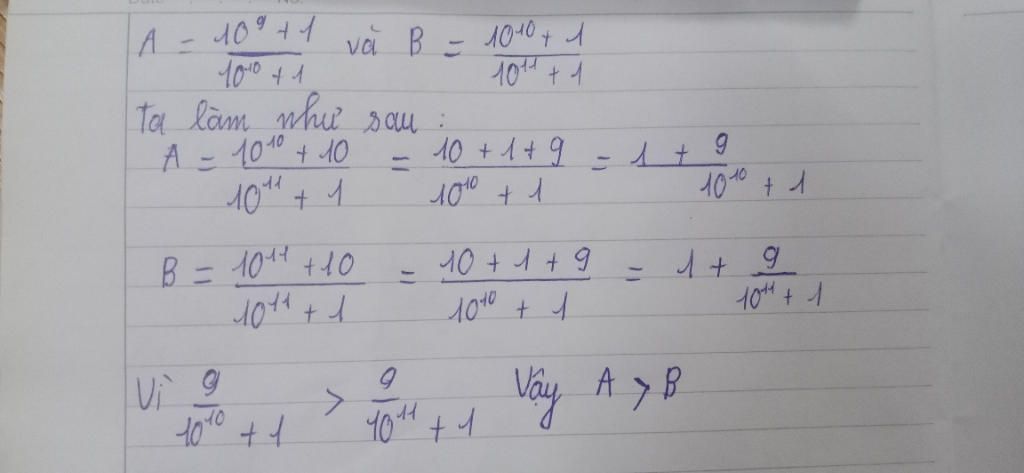 A = \frac{10^9 + 1}{10^{10} + 1} và B = \frac{10^{10} + 1}{10^{11} + 1}
Ta làm như sau :
A = \frac{10^{10} + 10}{10^{11} + 1} = \frac{10 + 1 + 9}{10^{10} + 1} = \frac{1 + 9}{10^{10} + 1}
B = \frac{10^{11} + 10}{10^{11} + 1} = \frac{10 + 1 + 9}{10^{10} + 1} = 1 + \frac{9}{10^{11} + 1}
Vì \frac{9}{10^{10} + 1} > \frac{9}{10^{11} + 1} Vậy A > B